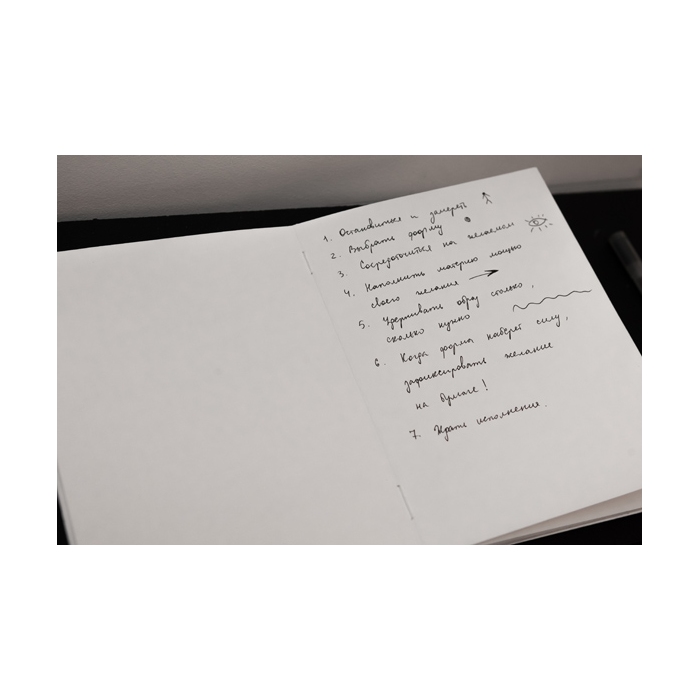 1. Остановиться и замереть
2. Выбрать форму
3. Сосредоточится на желаемом
4. Наполнить материю мощью
своего желания
5. Удерживать образ столько,
сколько нужно
6. Когда форма наберет силу,
зафиксировать желание
на бумаге!
7. Ждать исполнения.